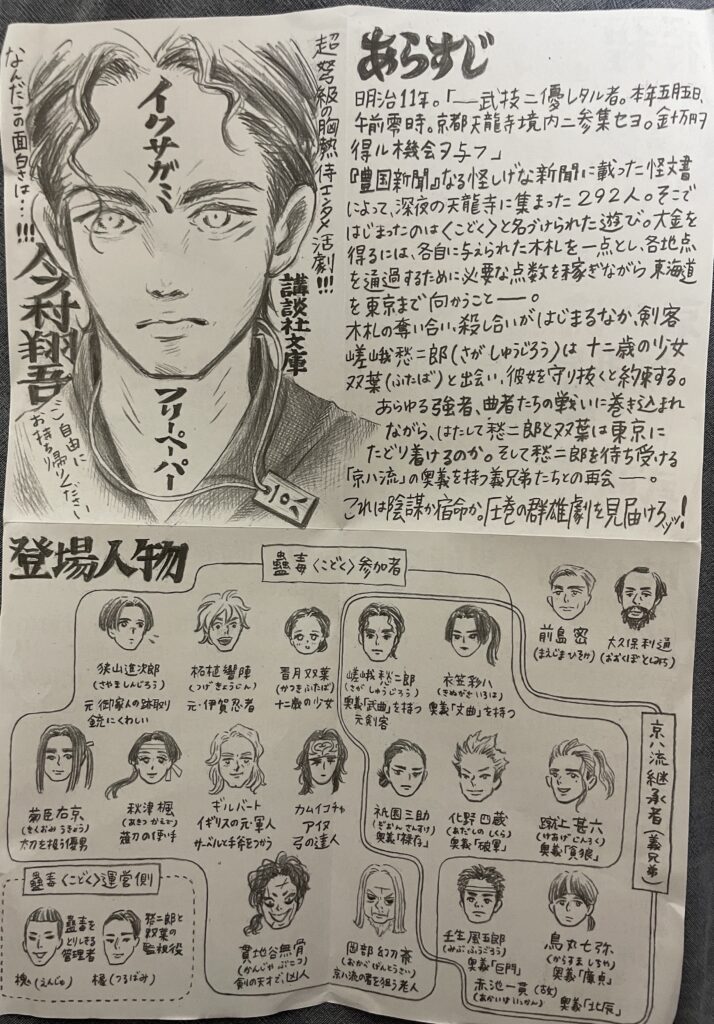 超弩級の胸熱侍エンタメ活劇!!!
イクサガミ
なんだこの面白さは…!!!
今村翔吾
講談社文庫
フリーペーパー
ご自由に
お持ち帰りください
あらすじ
明治11年。「―武技ニ優レタル者。本年五月五日、
午前零時。京都天龍寺境内ニ参集セヨ。金十万円ヲ
得ル機会ヲ与フ」
『豊国新聞』なる怪しげな新聞に載った怪文書
によって、深夜の天龍寺に集まった292人。そこで
はじまったのは〈こどく〉と名づけられた遊び。大金を
得るには、各自に与えられた木札を一点とし、各地点
を通過するために必要な点数を稼ぎながら東海道
を東京まで向かうこと―。
木札の奪い合い、殺し合いがはじまるなか、剣客
嵯峨愁二郎(さがしゅうじろう)は十二歳の少女
双葉(ふたば)と出会い、彼女を守り抜くと約束する。
あらゆる強者、曲者たちの戦いに巻き込まれ
ながら、はたして愁二郎と双葉は東京に
たどり着けるのか。そして愁二郎を待ち受ける
「京八流」の奥義を持つ義兄弟たちとの再会―。
これは陰謀か宿命か。圧巻の群雄劇を見届けろッ!
登場人物
蠱毒〈こどく〉参加者
狭山進次郎
(さやましんじろう)
元御家人の跡取り
銃にくわしい
柘植響陣
(つげきょうじん)
元・伊賀忍者
香月双葉
(かつきふたば)
十二歳の少女
嵯峨愁二郎
(さがしゅうじろう)
奥義「武曲」を持つ
元剣客
衣笠彩八
(きぬがさいろは)
奥義「文曲」を持つ
前島密
(まえじまひそか)
大久保利通
(おおくぼとしみち)
京八流継承者(義兄弟)
菊臣右京
(きくおみうきょう)
太刀を振う優男
秋津楓
(あきつかえで)
薙刀の使い手
ギルバート
イギリスの元・軍人
サーベルと手斧をつかう
カムイコチャ
アイヌ
弓の達人
祇園三助
(ぎおんさんすけ)
奥義「禄存」
化野四蔵
(あだしのしくら)
奥義「破軍」
蹴上甚六
(けあげじんろく)
奥義「貪狼」
蠱毒〈こどく〉運営側
蠱毒を
とりしきる
管理者
槐(えんじゅ)
愁二郎と
双葉の
監視役
橡(つるばみ)
貫地谷無骨
(かんじやぶこつ)
剣の天才で、凶人
岡部幻刀斎
(おかべげんとうさい)
京八流の者を狙う老人
壬生風五郎
(みぶふうごろう)
奥義「巨門」
烏丸七弥
(からすましちや)
奥義「廉貞」
赤池一貫(故)
(あかいけいっかん)
奥義「北辰」